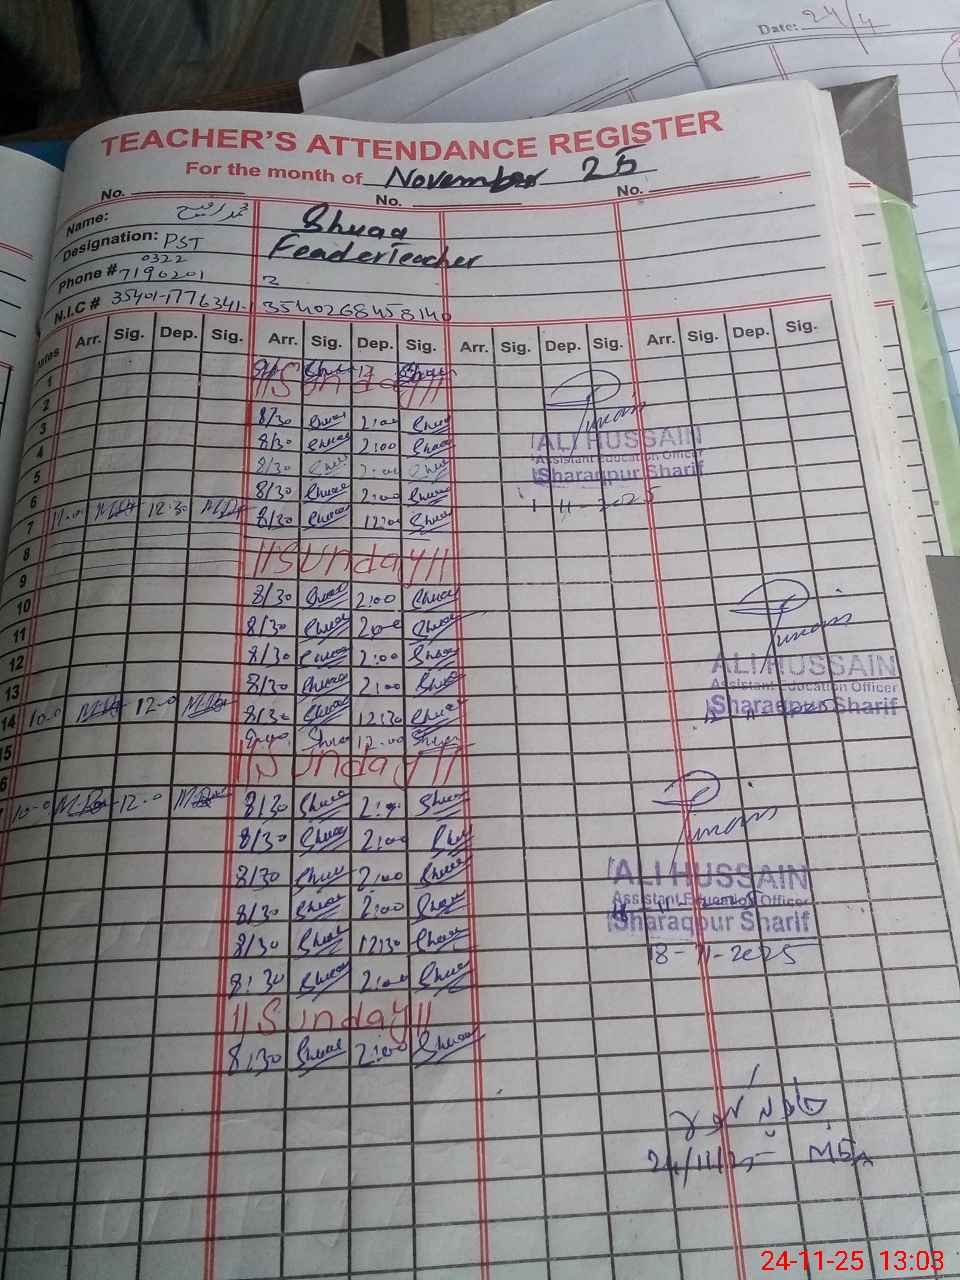 Date: 24/4
TEACHER'S ATTENDANCE REGISTER
For the month of November 25
No. No. No.
Name: Shuaa
Designation: PST FeaderTeacher
Phone # 0322
7190201
N.I.C # 35401-1776341-1 3540268458140
Dates Arr. Sig. Dep. Sig. Arr. Sig. Dep. Sig. Arr. Sig. Dep. Sig. Arr. Sig. Dep. Sig.
1
||Sunday||
2
3 8/30 Shuaa 2:00 Shuaa
4 8/30 Shuaa 2:00 Shuaa
5 8/30 2:00
6 8/30 Shuaa 2:00 Shuaa
7 12:30 8/30 Shuaa Shuaa
8
||Sunday||
9
10 8/30 Shuaa 2:00 Shuaa
11 8/30 Shuaa Shuaa
12 8/30 Shuaa 2:00 Shuaa
13 8/30 Shuaa 2:00 Shuaa
14 8/30 Shuaa 12:30 Shuaa
15
||Sunday||
8/30 Shuaa Shuaa
8/30 Shuaa 2:00
8/30 Shuaa 2:00 Shuaa
8/30 Shuaa 2:00 Shuaa
8/30 Shuaa 12:30 Shuaa
8:30 Shuaa 2:00 Shuaa
||Sunday||
8:30 Shuaa 2:00 Shuaa
ALI HUSSAIN
Assistant Education Officer
Sharaqpur Sharif
1-11-2025
ALI HUSSAIN
Assistant Education Officer
Sharaqpur Sharif
ALI HUSSAIN
Assistant Education Officer
Sharaqpur Sharif
18-11-2025
24/11/25 MEA
24-11-25 13:03